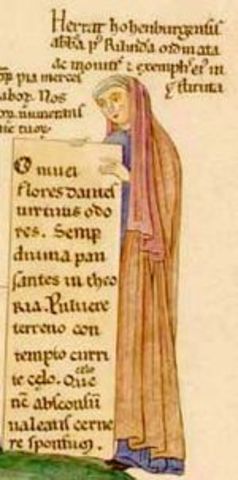 Herrat hohenburgensis
abba p' Rilinda ordinata
ac monitis & exempl' ei' in
stituta
pia merces
labor. Nos
munerans
O niuei
flores dantes
uirtutis odo
res. Semp
diuina pau
santes in theo
ria. Puluere
terreno con
tempto curri
te celo. Que
celo
nc absconsum
ualeatis cerne
re sponsum.